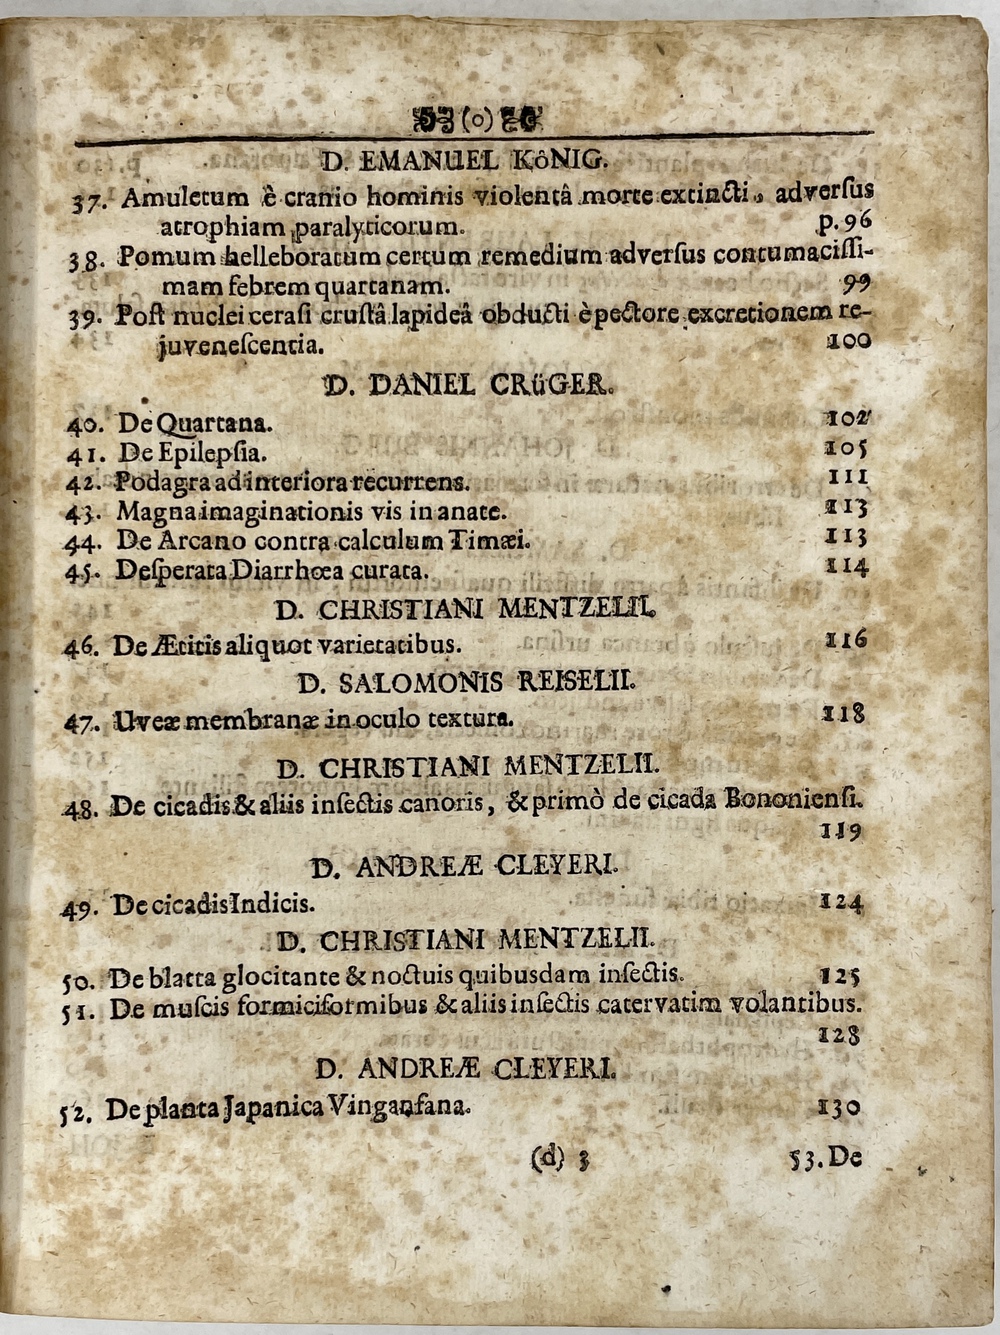 (o)
D. EMANUEL KôNIG.
37. Amuletum è cranio hominis violentâ morte extincti, adverſus
atrophiam paralyticorum. p. 96
38. Pomum helleboratum certum remedium adverſus contumaciſſi-
mam febrem quartanam. 99
39. Poſt nuclei ceraſi cruſtâ lapideâ obducti è pectore excretionem re-
juveneſcentia. 100
D. DANIEL CRüGER.
40. De Quartana. 102
41. De Epilepſia. 105
42. Podagra ad interiora recurrens. 111
43. Magna imaginationis vis in anate. 113
44. De Arcano contra calculum Timæi. 113
45. Deſperata Diarrhœa curata. 114
D. CHRISTIANI MENTZELII.
46. De Ætitis aliquot varietatibus. 116
D. SALOMONIS REISELII.
47. Uveæ membranæ in oculo textura. 118
D. CHRISTIANI MENTZELII.
48. De cicadis & aliis inſectis canoris, & primò de cicada Bononienſi.
119
D. ANDREÆ CLEYERI.
49. De cicadis Indicis. 124
D. CHRISTIANI MENTZELII.
50. De blatta glocitante & noctuis quibusdam inſectis. 125
51. De muſcis formiciformibus & aliis inſectis catervatim volantibus.
128
D. ANDREÆ CLEYERI.
52. De planta Japanica Vinganfana. 130
(d) 3 53. De